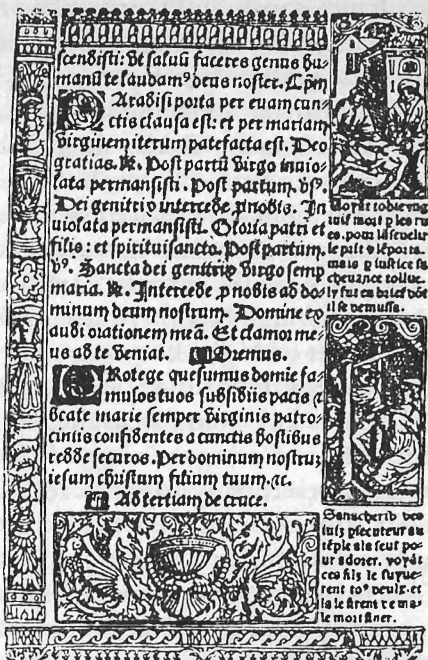 scendisti: Vt saluū faceres genus hu-
manū te laudamꝰ deus noster. Cp̄m
PAradisi porta per euam cun-
ctis clausa est: et per mariam
virginem iterum patefacta est. Deo
gratias. ℟. Post partū Virgo inuio-
lata permansisti. Post partum. v̉ꝰ.
Dei genitrix intercede p̄ nobis. In
uiolata permansisti. Gloria patri et
filio: et spirituisancto. Post partum.
v̉ꝰ. Sancta dei genitrix Virgo semp
maria. ℟. Intercede p nobis ad do-
minum deum nostrum. Domine ex
audi orationem meā. Et clamor me-
us ad te Veniat. Oremus.
PRotege quesumus domie fa-
mulos tuos subsidiis pacis ⁊
bcate marie semper Virginis patro-
ciniis confidentes a cunctis hostibus
redde securos. Per dominum nostruz
iesum christum filium tuum. ⁊c.
Ad tertiam de cruce.
Voyāt tobie vng
iuif mort p les ru
es. pour lēseuelir
le prīt ⁊ lēporta.
mais p iustice sa
cheuance tollue.
il se
Sanacherib des
iuifz psecuteur au
tēple ala seul po-
ur adorer. voyāt
ces filz le suyue-
rent toꝰ deulx. et
la le firent
le mort finer.